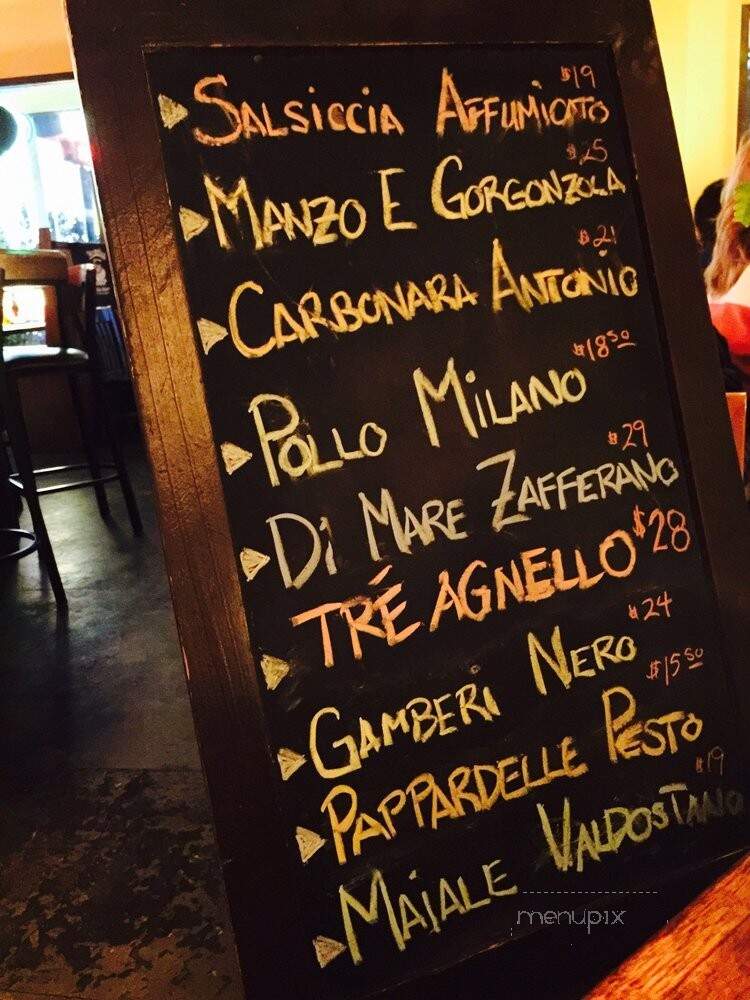 SALSICCIA AFFUMICATO $19
MANZO E GORGONZOLA $25
CARBONARA ANTONIO $21
POLLO MILANO $18.50
Di MARE ZAFFERANO $29
TRÉ AGNELLO $28
GAMBERi NERO $24
PAPPARDELLE PESTO $15.50
MAiALE VALDOSTANO $19
menupix